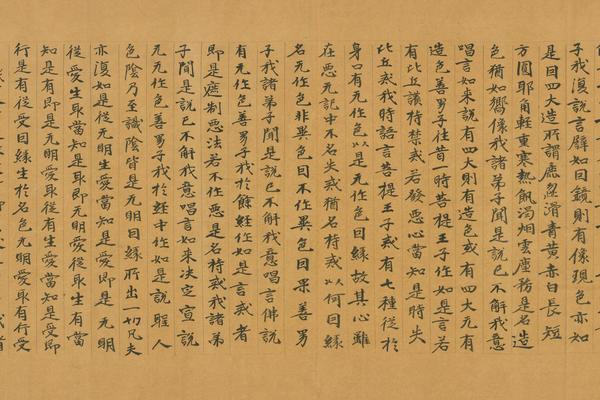 子我復說言譬如因鏡則有像現色亦如
是因四大造所謂麁澀滑青黃赤白長短
方圓耶角輕重寒熱飢渴烟雲塵務是名造
色猶如嚮像我諸弟子聞是說已不解我意
唱言如来說有四大則有造色或有四大无有
造色善男子往昔一時菩提王子作如是言若
有比丘護持禁戒若發惡心當知是時失
比丘戒我時語言菩提王子戒有七種從於
身口有无作色以是无作色因緣故其心雖
在惡无記中不名失戒猶名持戒以何因緣
名无作色非異色因不作異色因果善男
子我諸弟子聞是說已不解我意唱言佛說
有无作色善男子我於餘經作如是言戒者
即是遮制惡法若不作惡是名持戒我諸弟
子聞是說已不解我意唱言如来決定宣說
无无作色善男子我於經中作如是說聖人
色陰乃至識陰皆是无明因緣所出一切凡夫
亦復如是從无明生愛當知是愛即是无明
從愛生取當知是取即无明愛從取生有當
知是有即是无明愛取從有生受當知是受即
行是有從受因緣生於名色无明愛取有行受